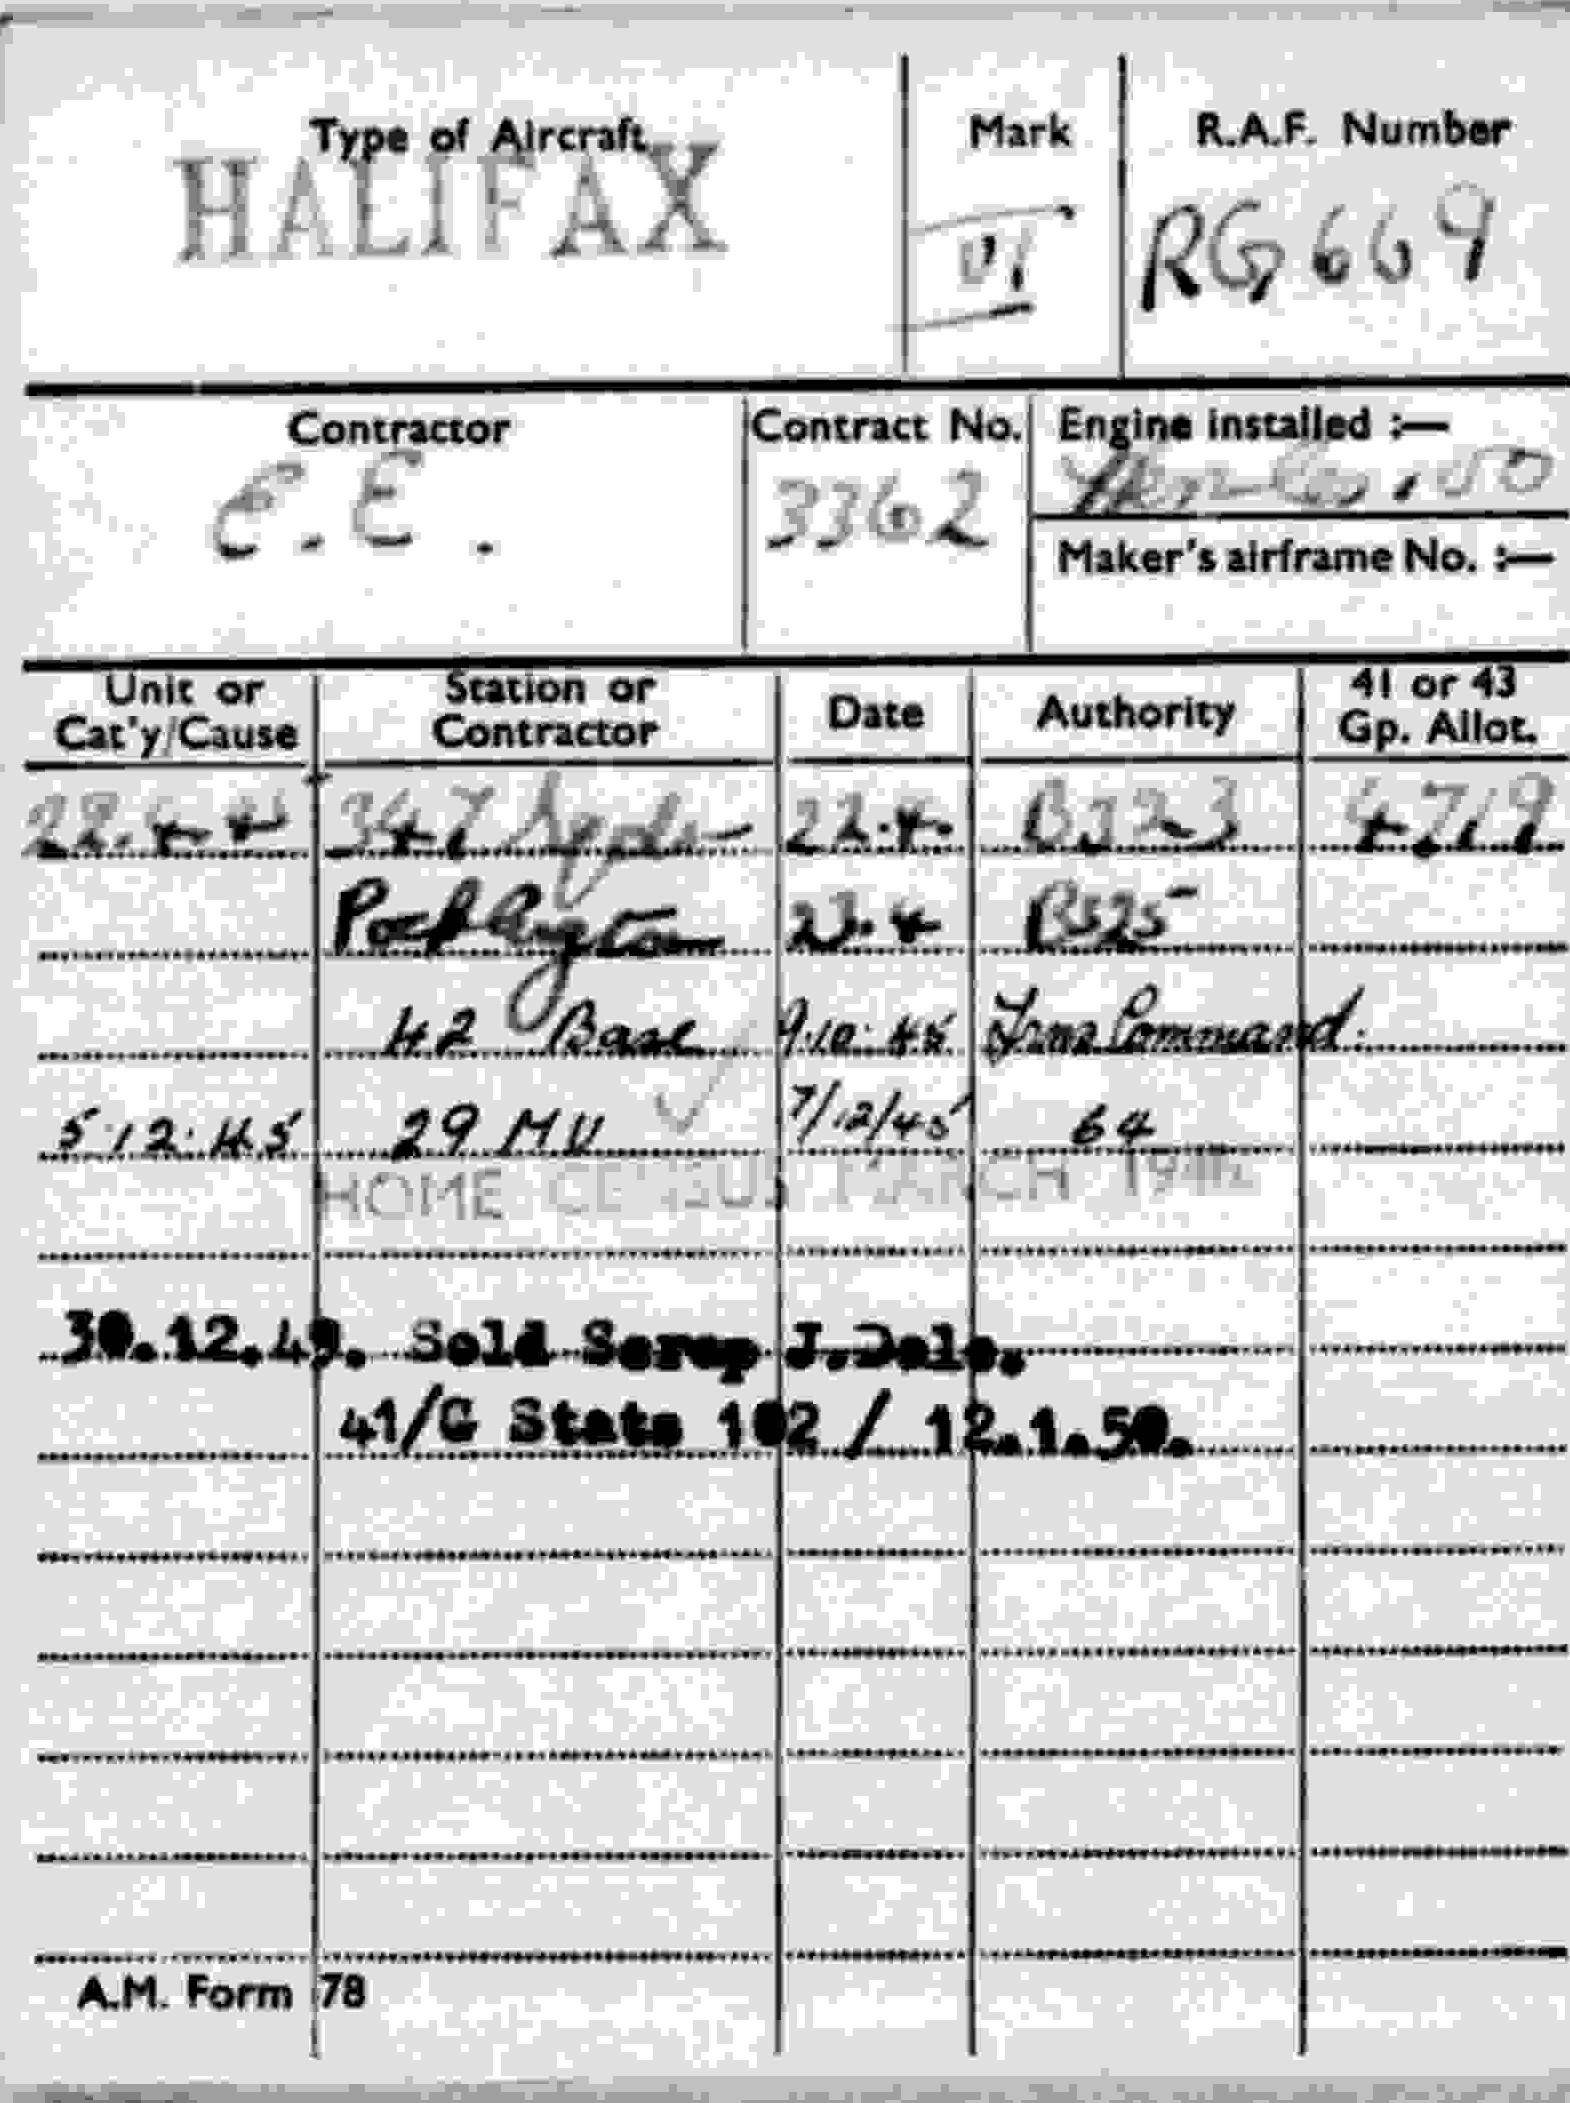 Type of Aircraft
HALIFAX
Mark
VI
R.A.F. Number
RG 669
Contractor
E.E.
Contract No.
3362
Engine installed :—
Maker's airframe No. :—
Unit or Cat'y/Cause
Station or Contractor
Date
Authority
41 or 43 Gp. Allot.
347 Sqdn 4719
Pocklington 23.4 B525
42 Base 9.10.45 Trans Command.
5.12.45 29 MU 7/12/45 64
HOME CENSUS MARCH 1946
30.12.49. Sold Scrap J.Dale.
41/G Stats 102 / 12.1.50.
A.M. Form 78